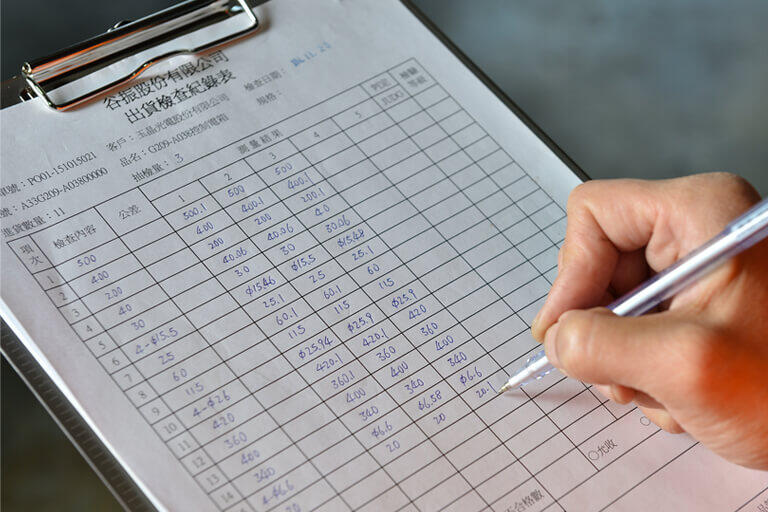 谷振股份有限公司
出貨檢查紀錄表
檢查日期：
客戶：玉晶光電股份有限公司 規格：
單號：PO01-151015021 品名：G209-A038控制電箱
號：A33G209-A03800000 抽檢量：3
進貨數量：11
項次 檢查內容 公差 測量結果 判定 JUDG 檢驗等級
1 2 3 4 5
1 500 500.1 500 500
2 400 400 400.1 400.1
3 200 200 200 200.1
4 40 40.06 40.06 40
5 30 30 30 30.06
6 4-φ15.5 φ15.46 φ15.5 φ15.48
7 25 25.1 25 25.1
8 60 60.1 60.1 60
9 115 115 115 115
10 4-φ26 φ25.94 φ25.9 φ25.9
11 420 420.1 420.1 420
12 360 360.1 360 360
13 400 400 400 400
14 340 340 340 340
4-φ6.6 φ6.6 φ6.58 φ6.6
20 20 20 20.1
不合格數
○允收